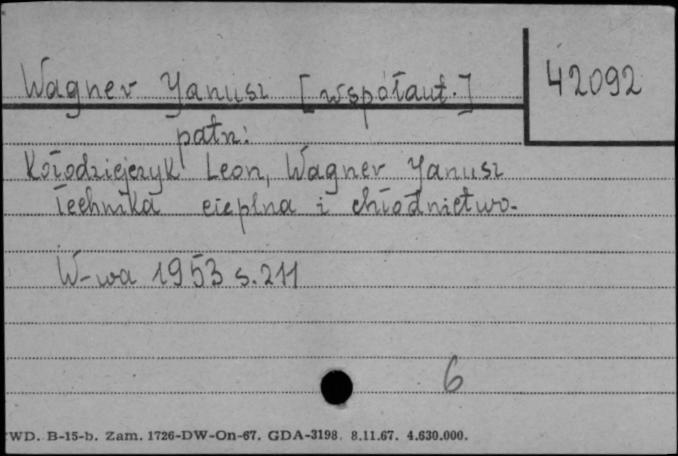 Wagner Janusz [współaut.]
42092
patrz:
Kołodziejczyk Leon, Wagner Janusz
Technika cieplna i chłodnictwo.
W-wa 1953 s. 211
6
WD. B-15-b. Zam. 1726-DW-On-67. GDA-3198. 8.11.67. 4.630.000.